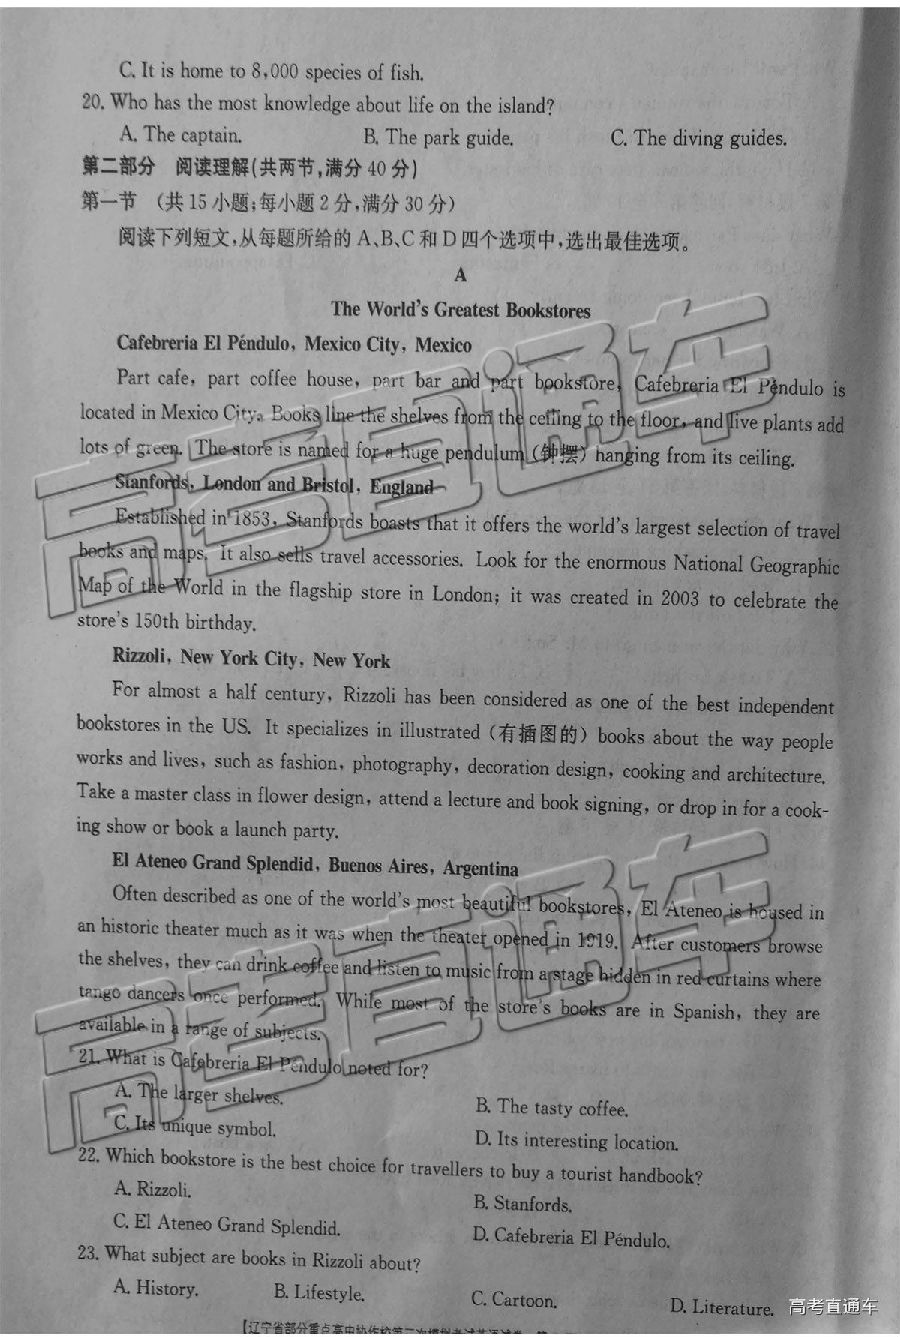 C. It is home to 8,000 species of fish.
20. Who has the most knowledge about life on the island?
A. The captain. B. The park guide. C. The diving guides.
第二部分 阅读理解(共两节,满分40分)
第一节 (共15小题;每小题2分,满分30分)
阅读下列短文,从每题所给的A、B、C和D四个选项中,选出最佳选项。
A
The World's Greatest Bookstores
Cafebreria El Péndulo, Mexico City, Mexico
Part cafe, part coffee house, part bar and part bookstore, Cafebreria El Péndulo is
located in Mexico City. Books line the shelves from the ceiling to the floor, and live plants add
lots of green. The store is named for a huge pendulum (钟摆) hanging from its ceiling.
Stanfords, London and Bristol, England
Established in 1853, Stanfords boasts that it offers the world's largest selection of travel
books and maps. It also sells travel accessories. Look for the enormous National Geographic
Map of the World in the flagship store in London; it was created in 2003 to celebrate the
store's 150th birthday.
Rizzoli, New York City, New York
For almost a half century, Rizzoli has been considered as one of the best independent
bookstores in the US. It specializes in illustrated (有插图的) books about the way people
works and lives, such as fashion, photography, decoration design, cooking and architecture.
Take a master class in flower design, attend a lecture and book signing, or drop in for a cook-
ing show or book a launch party.
El Ateneo Grand Splendid, Buenos Aires, Argentina
Often described as one of the world's most beautiful bookstores, El Ateneo is housed in
an historic theater much as it was when the theater opened in 1919. After customers browse
the shelves, they can drink coffee and listen to music from a stage hidden in red curtains where
tango dancers once performed. While most of the store's books are in Spanish, they are
available in a range of subjects.
21. What is Cafebreria El Péndulo noted for?
A. The larger shelves. B. The tasty coffee.
C. Its unique symbol. D. Its interesting location.
22. Which bookstore is the best choice for travellers to buy a tourist handbook?
A. Rizzoli. B. Stanfords.
C. El Ateneo Grand Splendid. D. Cafebreria El Péndulo.
23. What subject are books in Rizzoli about?
A. History. B. Lifestyle. C. Cartoon. D. Literature.
高考直通车
高考直通车
高考直通车